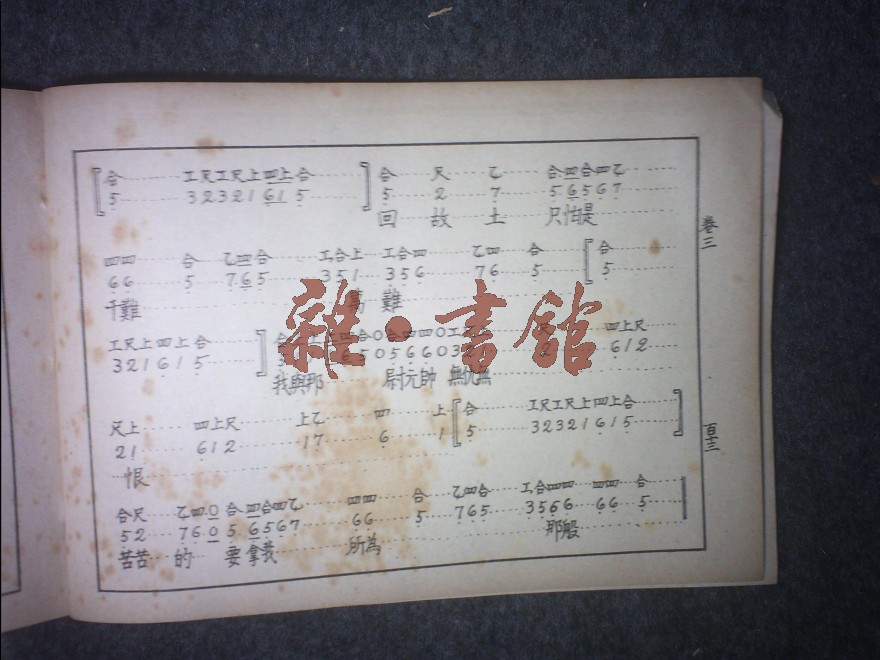 合 工尺工尺上四上合 合 尺 乙 合四合四乙
5 3 2 3 2 1 6 1 5 5 2 7 5 6 5 6 7
回 故 土 只怕是
四四 合 乙四合 工合上 工合四 乙四 合 合
6 6 5 7 6 5 3 5 1 3 5 6 7 6 5 5
千難 萬 難
工尺上四上合 四上尺
3 2 1 6 1 5 6 5 0 5 6 6 0 3 2 6 1 2
我與那 尉元帥 無仇無
尺上 四上尺 上乙 四 上 合 工尺工尺上四上合
2 1 6 1 2 1 7 6 1 5 3 2 3 2 1 6 1 5
恨
合尺 乙四〇 合 四合四乙 四四 合 乙四合 工合四四 四四 合
5 2 7 6 0 5 6 5 6 7 6 6 5 7 6 5 3 5 6 6 6 6 5
苦苦 的 要拿我 所為 那般
卷三
百十三
雜·書館